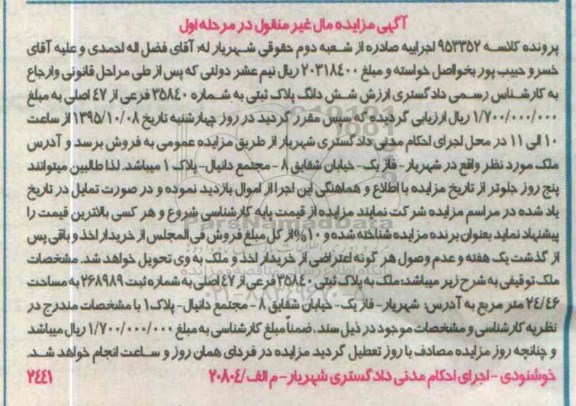 آگهی مزایده مال غیر منقول در مرحله اول
پرونده کلاسه ۹۵۳۳۵۲ اجراییه صادره از شعبه دوم حقوقی شهریار له: آقای فضل اله احمدی و علیه آقای
خسرو حبیب پور بخواصل خواسته و مبلغ ۲۰۳۱۸۴۰۰ ریال نیم عشر دولتی که پس از طی مراحل قانونی وارجاع
به کارشناس رسمی دادگستری ارزش شش دانگ پلاک ثبتی به شماره ۳۵۸۴۰ فرعی از ۴۷ اصلی به مبلغ
۱/۷۰۰/۰۰۰/۰۰۰ ریال ارزیابی گردیده که سپس مقرر گردید در روز چهارشنبه تاریخ ۱۳۹۵/۱۰/۰۸ از ساعت
۱۰ الی ۱۱ در محل اجرای احکام مدنی دادگستری شهریار از طریق مزایده عمومی به فروش برسد و آدرس
ملک مورد نظر واقع در شهریار - فاز یک - خیابان شقایق ۸ - مجتمع دانیال - پلاک ۱ میباشد. لذا طالبین میتوانند
پنج روز جلوتر از تاریخ مزایده با اطلاع و هماهنگی این اجرا از اموال بازدید نموده و در صورت تمایل در تاریخ
یاد شده در مراسم مزایده شرکت نمایند مزایده از قیمت پایه کارشناسی شروع و هر کسی بالاترین قیمت را
پیشنهاد نماید بعنوان برنده مزایده شناخته شده و ۱۰% از کل مبلغ فروش فی المجلس از خریدار اخذ و باقی پس
از گذشت یک هفته و عدم وصول هر گونه اعتراضی از خریدار اخذ و ملک به وی تحویل خواهد شد. مشخصات
ملک توقیفی به شرح زیر میباشد: ملک به پلاک ثبتی ۳۵۸۴۰ فرعی از ۴۷ اصلی به شماره ثبت ۲۶۸۹۸۹ به مساحت
۲۴/۴۶ متر مربع به آدرس: شهریار - فاز یک - خیابان شقایق ۸ - مجتمع دانیال - پلاک ۱ با مشخصات مندرج در
نظریه کارشناسی و مشخصات موجود در ذیل سند. ضمناً مبلغ کارشناسی به مبلغ ۱/۷۰۰/۰۰۰/۰۰۰ ریال میباشد
و چنانچه روز مزایده مصادف با روز تعطیل گردید مزایده در فردای همان روز و ساعت انجام خواهد شد.
خوشنودی - اجرای احکام مدنی دادگستری شهریار - م الف/۲۰۸۰۴ ۲۴۴۱